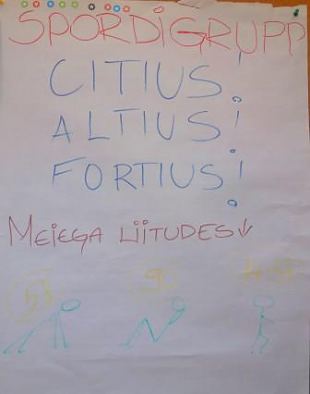 SPORDIGRUPP
CITIUS!
ALTIUS!
FORTIUS!
MEIEGA LIITUDES